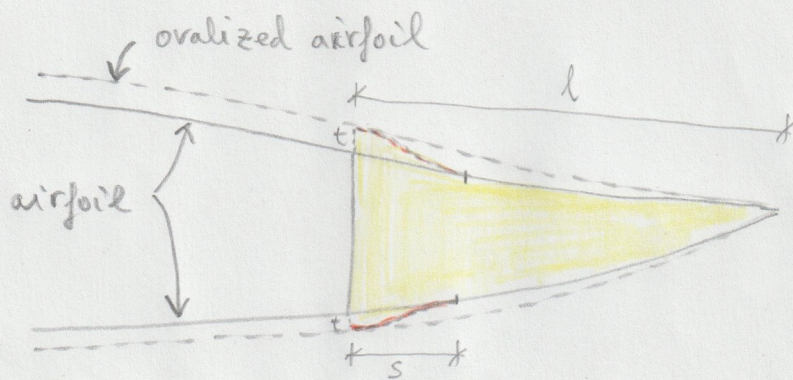 ovalized airfoil
l
t
airfoil
t
s